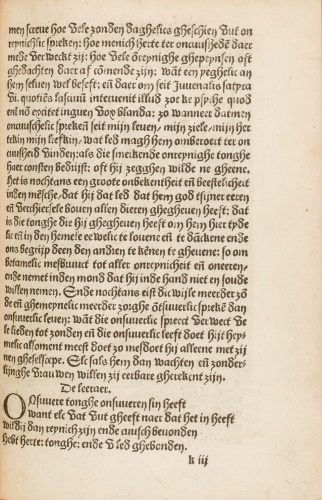 men screve hoe vele zonden daghelics gheschien uut on
reynichlic spreken: hoe menich herte ter onkuusheden daer
mede verwect zij: hoe vele onreynighe ghepeynsen oft
ghedachten daer af comende zijn: want een yeghelic an
hem selven wel beseft: en daer om seit Juvenalis satyra
vi. quoties lasivu intervenit illud zoe ke psyche quod
em no excitet inguen vox blanda: zo wanneer datmen
onkuuschelic spreken seit mijn leven, mijn ziele, mijn her
tekin mijn liefkin, wat led magh hem ombroeit ter on
kuusheid vinden: als die smekende onreynighe tonghe
huer consten bedrijft: oft hij zegghen wilde ne gheene.
Het is nochtans een groote onbekentheit en beestelicheit
inden mensche, dat hij dat led dat hem god tsijner eeren
en verchiersele boven allen dieren ghegheven heeft: dat
is die tonghe die hij ghegheven heeft om hem hier tyde
lic en in den hemele eewelic te lovene en te danckene ende
ons begrijp deen den andren te kennen te ghevene: so om
betamelic mesbruuct tot aller onreynicheit en oneeren,
ende nemet inden mond dat hij inde hand niet en soude
willen nemen. Ende nochtans eist die wijle meerder zo
de en ghemeynelic meerder zorghe omsuverlic spreken dan
onsuverlic leven: want die onsuverlic spreect verwect ve
le lieden tot zonden en die onsuverlic leeft doet hijt hey
melic alsoment meest doet zo mesdoet hij alleene met zij
nen gheselscepe. Elc sals hem dan wachten en zonder-
linghe vrauwen willen zij eerbare gherekent zijn.
De leeraer.
Onsuvere tonghe onsuveren sin heeft
want elc vat uut gheeft naer dat het in heeft
wildij dan reynich zijn ende kuusch bevonden
hebt herte: tonghe: ende vled ghebonden.
k iij